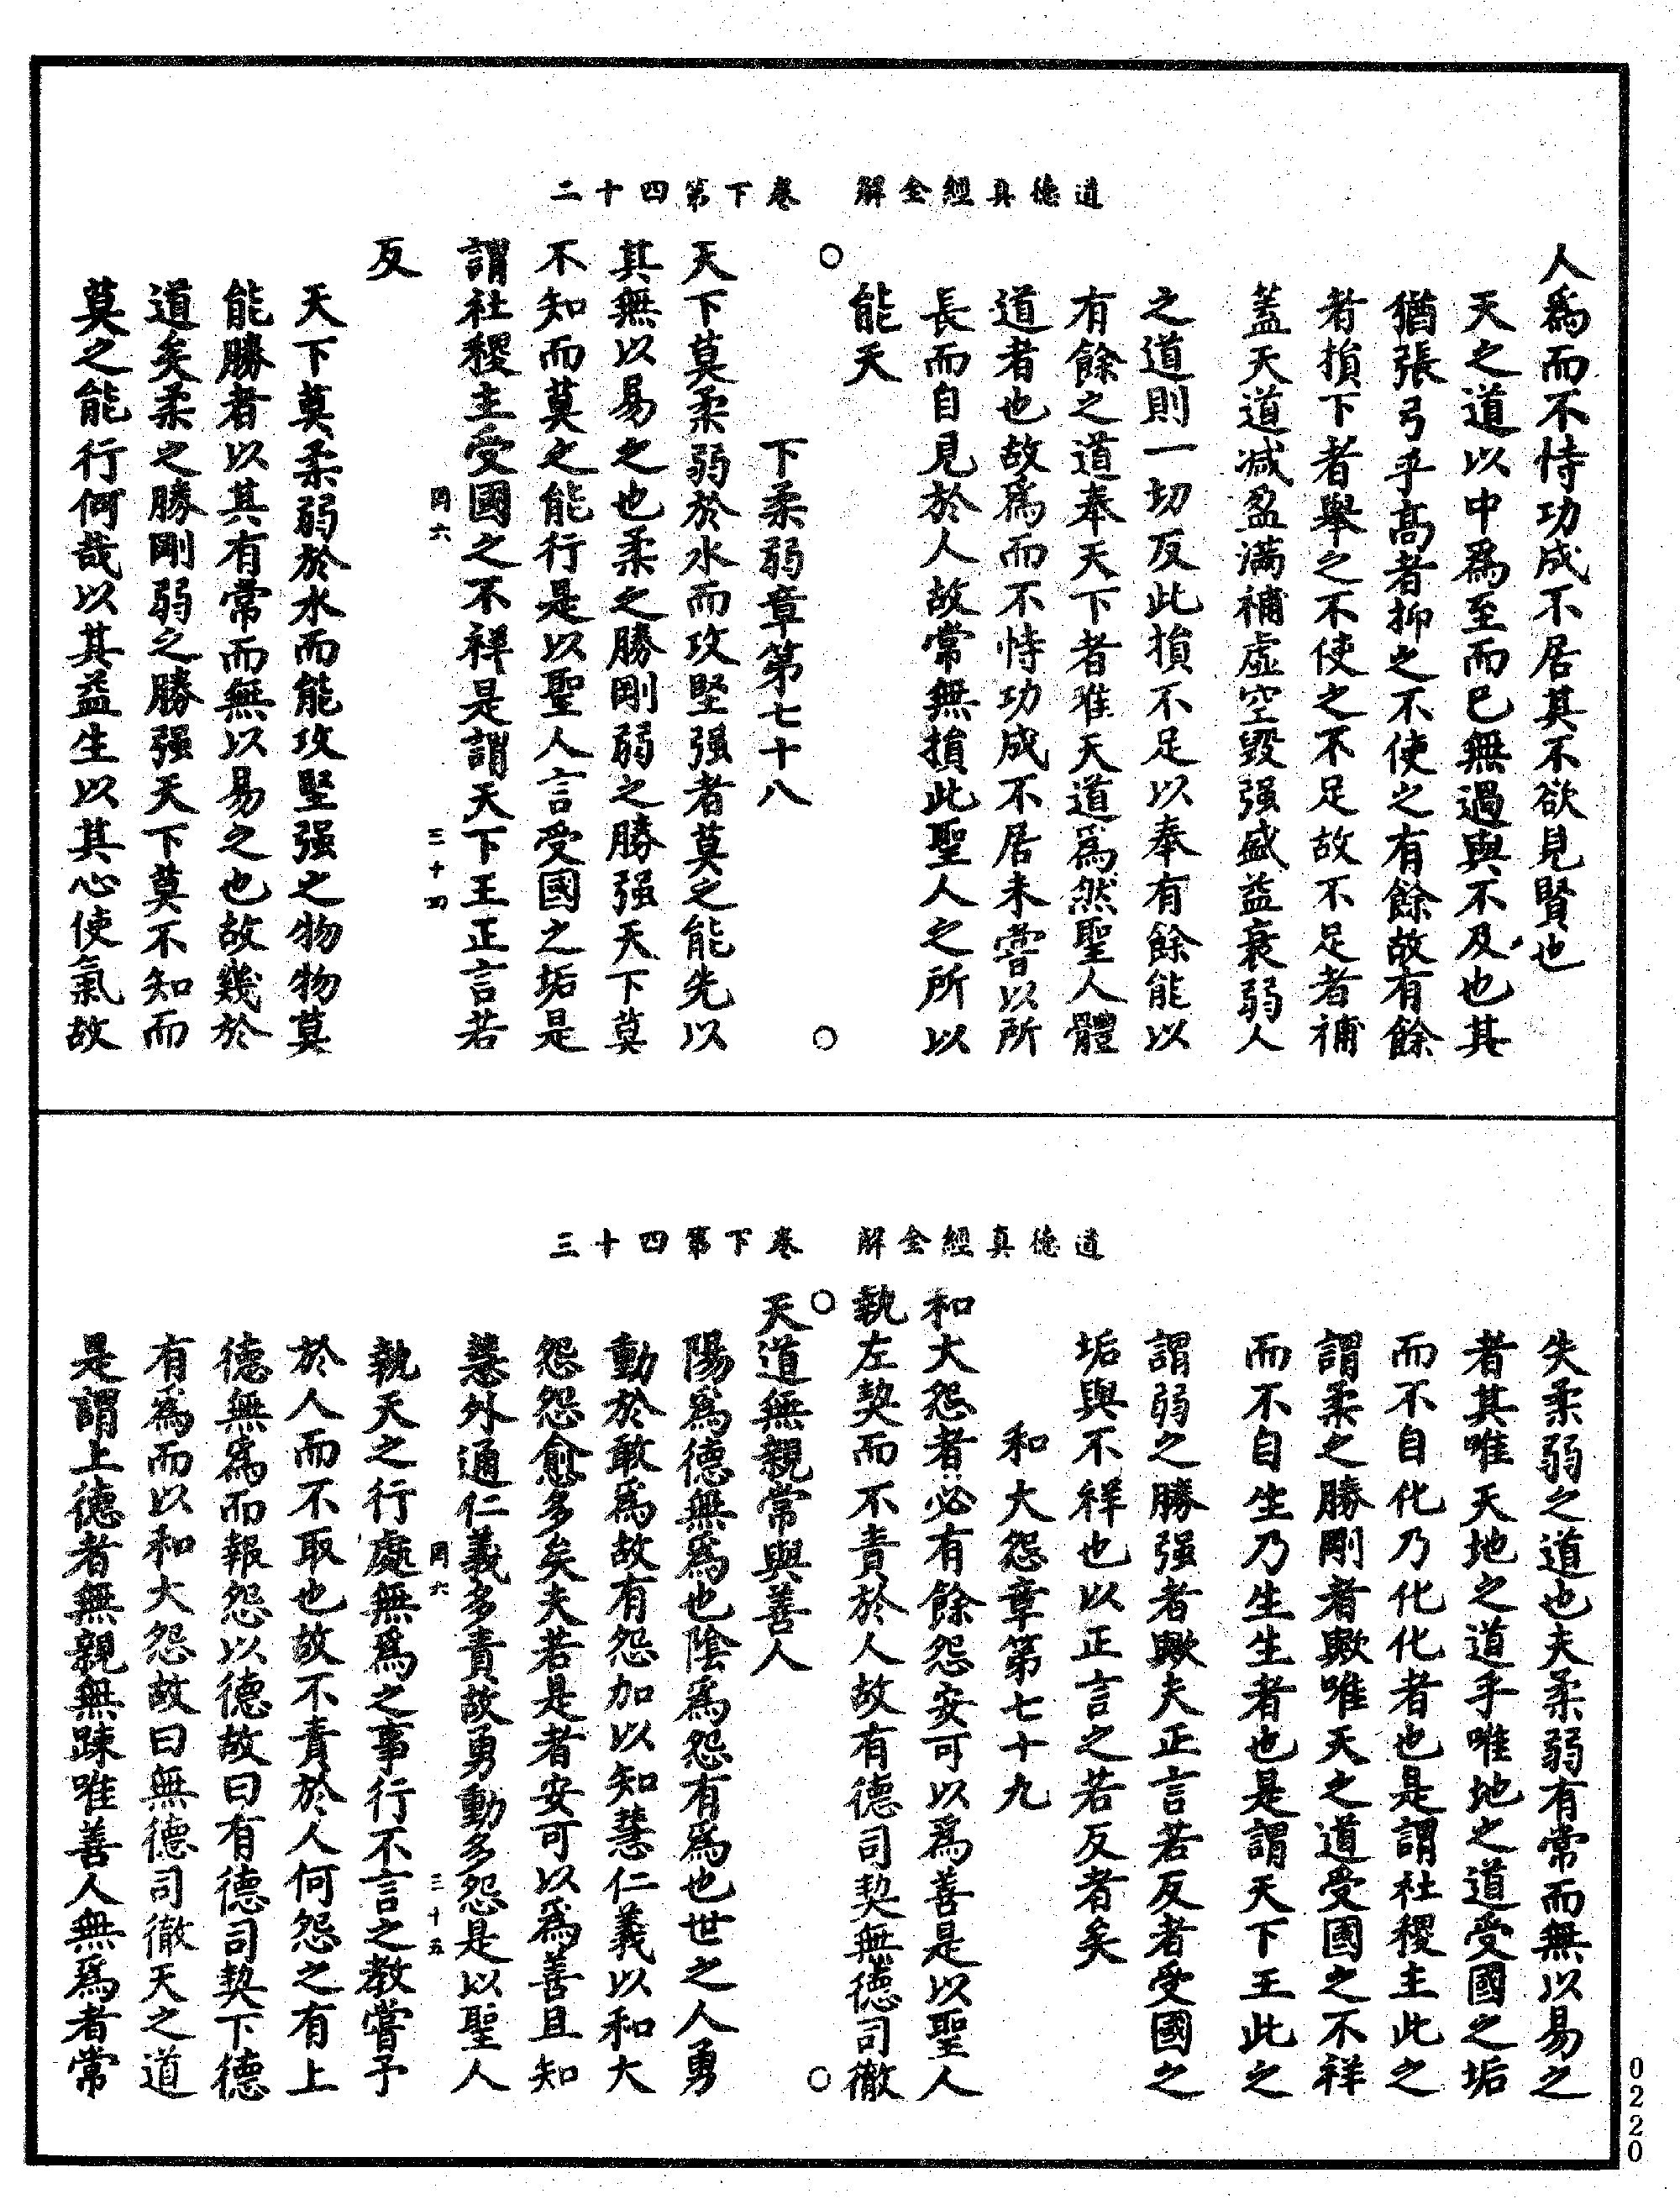 道德真經全解　卷下第四十二
人爲而不恃功成不居其不欲見賢也
天之道以中爲至而已無過與不及也其
猶張弓乎高者抑之不使之有餘故有餘
者損下者舉之不使之不足故不足者補
蓋天道減盈滿補虛空毀强盛益衰弱人
之道則一切反此損不足以奉有餘能以
有餘之道奉天下者唯天道爲然聖人體
道者也故爲而不恃功成不居未嘗以所
長而自見於人故常無損此聖人之所以
能天
下柔弱章第七十八
天下莫柔弱於水而攻堅强者莫之能先以
其無以易之也柔之勝剛弱之勝强天下莫
不知而莫之能行是以聖人言受國之垢是
謂社稷主受國之不祥是謂天下王正言若
罔六　三十四
反
天下莫柔弱於水而能攻堅强之物物莫
能勝者以其有常而無以易之也故幾於
道矣柔之勝剛弱之勝强天下莫不知而
莫之能行何哉以其益生以其心使氣故
道德真經全解　卷下第四十三
失柔弱之道也夫柔弱有常而無以易之
者其唯天地之道乎唯地之道受國之垢
而不自化乃化化者也是謂社稷主此之
謂柔之勝剛者歟唯天之道受國之不祥
而不自生乃生生者也是謂天下王此之
謂弱之勝强者歟夫正言若反者受國之
垢與不祥也以正言之若反者矣
和大怨章第七十九
和大怨者必有餘怨安可以爲善是以聖人
執左契而不責於人故有德司契無德司徹
天道無親常與善人
陽爲德無爲也陰爲怨有爲也世之人勇
動於敢爲故有怨加以知慧仁義以和大
怨怨愈多矣夫若是者安可以爲善且知
慧外通仁義多責故勇動多怨是以聖人
罔六　三十五
執天之行處無爲之事行不言之教嘗予
於人而不取也故不責於人何怨之有上
德無爲而報怨以德故曰有德司契下德
有爲而以和大怨故曰無德司徹天之道
是謂上德者無親無踈唯善人無爲者常
0220